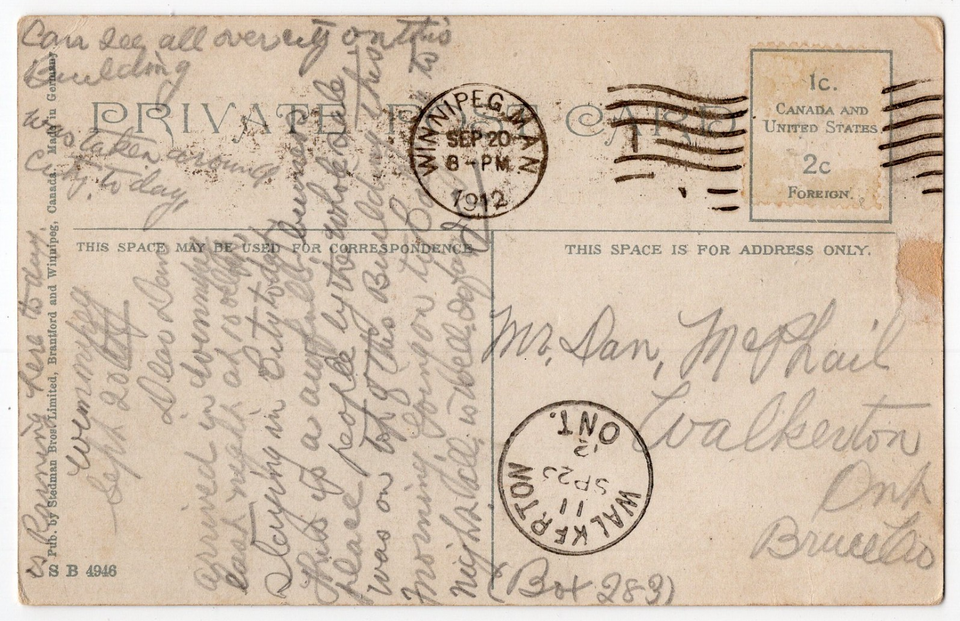 PRIVATE POST CARD
WINNIPEG, MAN
SEP 20
8 - PM
1912
1c.
CANADA AND
UNITED STATES
2c
FOREIGN.
THIS SPACE MAY BE USED FOR CORRESPONDENCE
THIS SPACE IS FOR ADDRESS ONLY.
Pub. by Stedman Bros. Limited, Brantford and Winnipeg, Canada. Made in Germany.
S B 4946
Winnipeg
Sept 20
Dear Dan
arrived in Winnipeg
last night at
Staying in City today
this is a awfull business
place people by the whole sale
was on top of this Building this
morning going on to
night
is Raining here to day
was taken around
City to day,
Can see all over city on this
Building
Mr, Dan, McPhail
Walkerton
Ont
Bruce Co
(Box 283)
WALKERTON
ONT.
11
SP 23
12